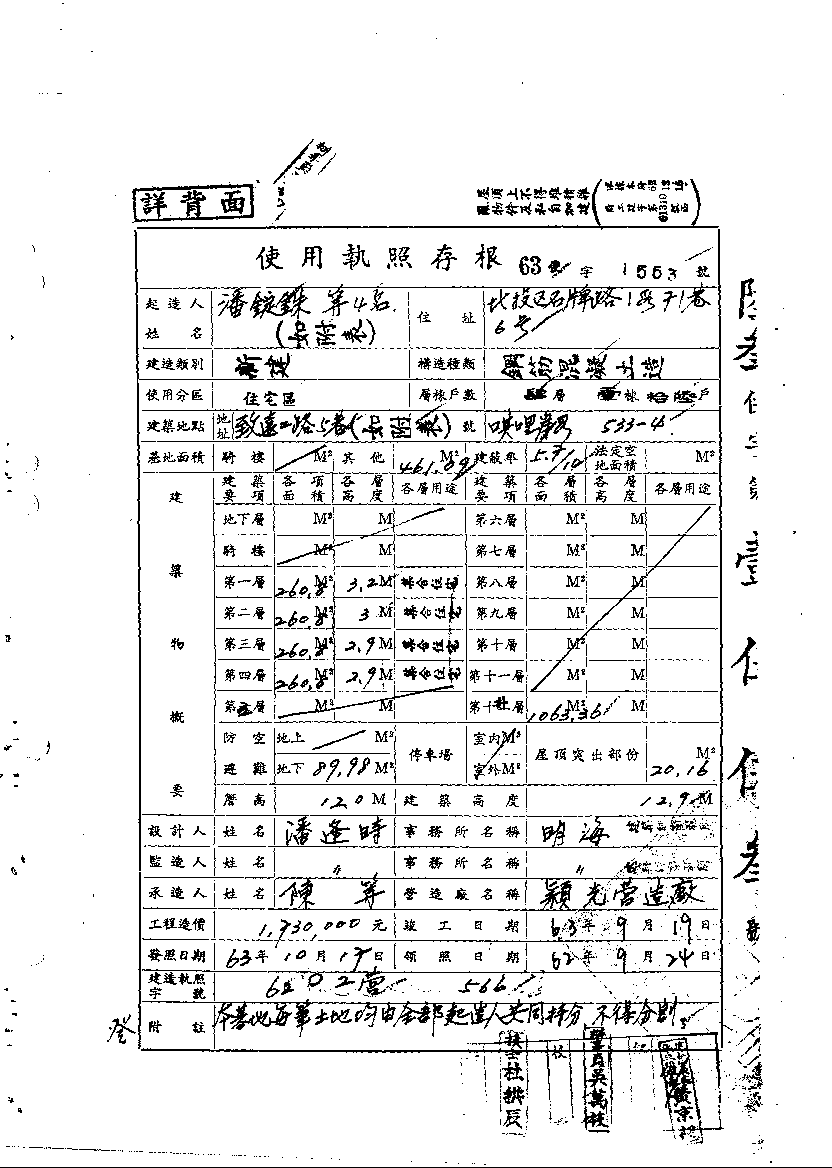 詳背面
屋頂上不得堆積雜
物件及私自加建
使用執照存根 63 字 1553 號
起造人 姓名 潘錠鏶 等4名 (如附表) 住址 北投區石牌路1段71巷6号
建造類別 新建 構造種類 鋼筋混凝土造
使用分區 住宅區 層棟戶數 層 棟 戶
建築地點 地址 致遠二路5巷(如附表)號 唭哩岸段 533-4
基地面積 騎樓 M² 其他 461.89 M² 建蔽率 5.7/10 法定空地面積 M²
建築物概要
建築要項 各項面積 各層高度 各層用途 建築要項 各層面積 各層高度 各層用途
地下層 M² M 第六層 M² M
騎樓 M² M 第七層 M² M
第一層 260.8 M² 3.2 M 集合住宅 第八層 M² M
第二層 260.8 M² 3 M 集合住宅 第九層 M² M
第三層 260.8 M² 2.9 M 集合住宅 第十層 M² M
第四層 260.8 M² 2.9 M 集合住宅 第十一層 M² M
第五層 M² M 第十 層 1063.36 M² M
防空避難 地上 M² 停車場 室內M² 屋頂突出部份 M²
地下 89.98 M² 室外M² 20.16
層高 12.0 M 建築高度 12.9 M
設計人 姓名 潘逢時 事務所名稱 明海
監造人 姓名 〃 事務所名稱 〃
承造人 姓名 陳 營造廠名稱 穎光營造廠
工程造價 1,730,000 元 竣工日期 63年9月19日
發照日期 63年10月17日 領照日期 62年9月24日
建造執照字號 62 0 工營 566
附註 本基地每筆土地均由全部起造人共同持分不得分割。
登
技士杜拱辰
校